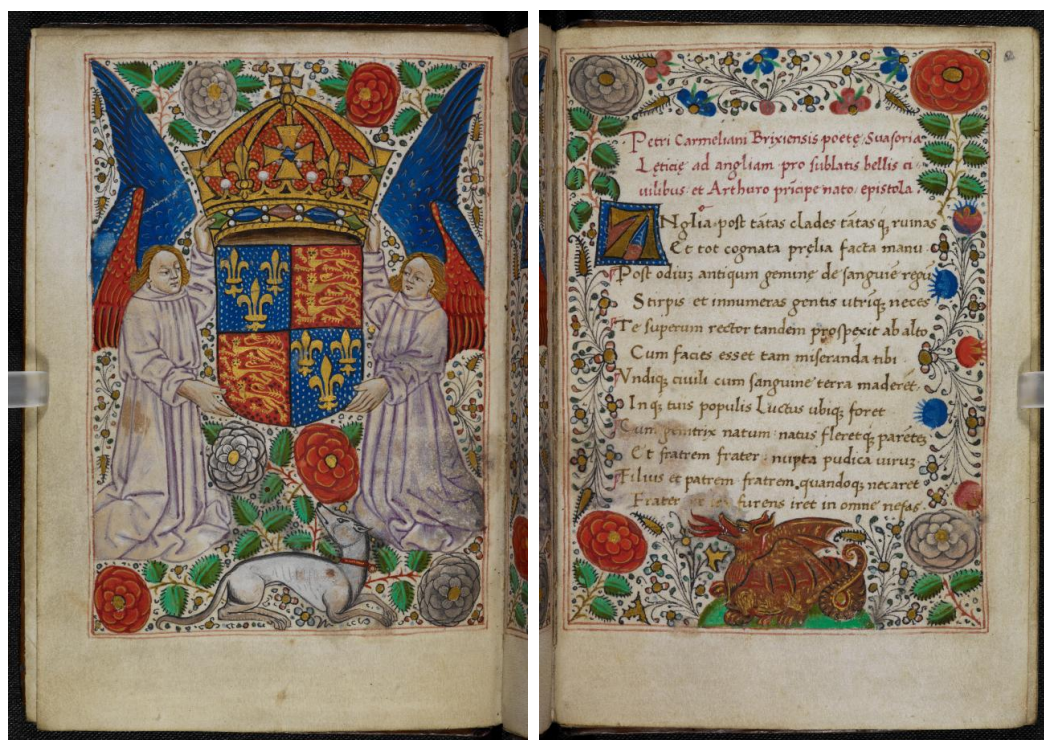 Petri Carmeliani Brixiensis poetę Suasoria
Lętitię ad angliam pro sublatis bellis ci
uilibus et Arthuro prīcipe nato epistola.
ANglia post tātas clades tātasq; ruinas
Et tot cognata pręlia facta manu:
Post odiuʒ antiquum geminę de sanguīe regū
Stirpis et innumeras gentis utriq; neces
Te superum rector tandem prospexit ab alto
Cum facies esset tam miseranda tibi
Vndiq; ciuili cum sanguine terra maderet.
Inq; tuis populis Luctus ubiq; foret
Cum genitrix natum natus fleretq; parētes
Et fratrem frater nupta pudica uiruʒ
Filius et patrem fratrem quandoq; necaret
Frater furens iret in omne nefas